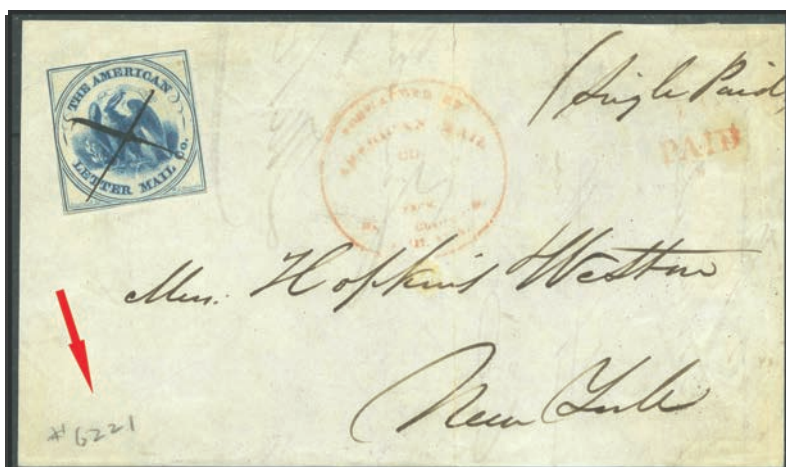 THE AMERICAN
LETTER MAIL Co.
FORWARDED BY
AMERICAN MAIL
CO.
FROM
(Single Paid)
PAID
Hopkins Weston
New York
#6221